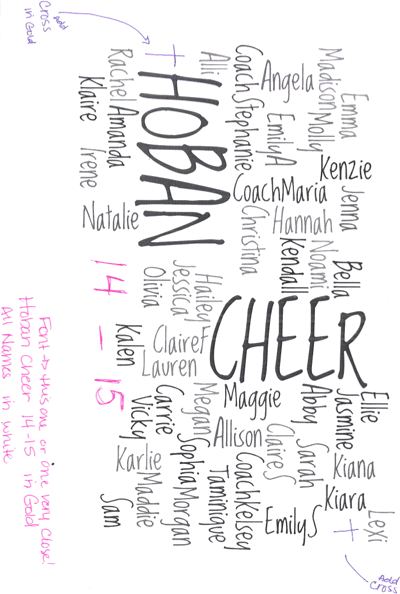 Cross add
in Gold
HOBAN
CHEER
14 - 15
Rachel
Klaire
Amanda
Irene
Natalie
Alli
Coach Stephanie
Angela
EmilyA
Madison
Molly
Emma
Kenzie
Jenna
CoachMaria
Christina
Hannah
Kendall
Noami
Bella
Hailey
Jessica
Olivia
ClaireF
Lauren
Kalen
Maggie
Megan
Carrie
Vicky
Karlie
Maddie
Sam
Sophia
Morgan
Allison
Taminique
CoachKelsey
ClaireS
EmilyS
Abby
Sarah
Jasmine
Ellie
Kiana
Kiara
Lexi
Add
Cross
Font is this one or one very close!
Hoban Cheer 14-15 in Gold
All Names in white